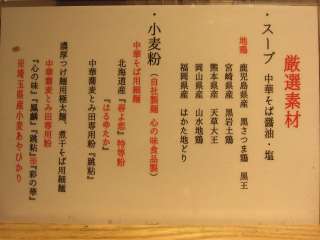 厳選素材
・スープ 中華そば醤油・塩
地鶏 鹿児島県産 黒さつま鶏 黒王
宮崎県産 黒岩土鶏
熊本県産 天草大王
岡山県産 山水地鶏
福岡県産 はかた地どり
・小麦粉 (自社製麺 心の味食品製)
中華そば用細麺
北海道産『春よ恋』特等粉
『はるゆたか』
中華蕎麦とみ田専用粉『跳粘』
濃厚つけ麺用極太麺、煮干そば用細麺
中華蕎麦とみ田専用粉
『心の味』『鳳麟』『跳粘』『彩の華』
埼玉県産小麦あやひかり